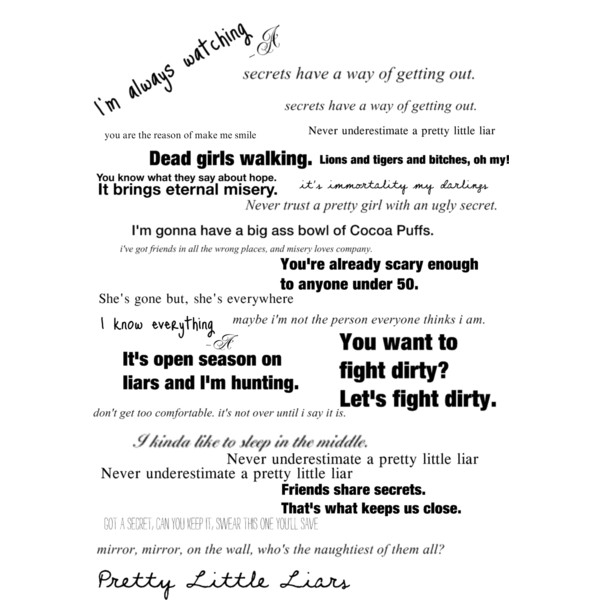 I'm always watching
-A
secrets have a way of getting out.
secrets have a way of getting out.
you are the reason of make me smile
Never underestimate a pretty little liar
Dead girls walking.
Lions and tigers and bitches, oh my!
You know what they say about hope.
It brings eternal misery.
it's immortality my darlings
Never trust a pretty girl with an ugly secret.
I'm gonna have a big ass bowl of Cocoa Puffs.
i've got friends in all the wrong places, and misery loves company.
You're already scary enough
to anyone under 50.
She's gone but, she's everywhere
I know everything
-A
maybe i'm not the person everyone thinks i am.
It's open season on
liars and I'm hunting.
You want to
fight dirty?
Let's fight dirty.
don't get too comfortable. it's not over until i say it is.
I kinda like to sleep in the middle.
Never underestimate a pretty little liar
Never underestimate a pretty little liar
Friends share secrets.
That's what keeps us close.
GOT A SECRET, CAN YOU KEEP IT, SWEAR THIS ONE YOU'LL SAVE
mirror, mirror, on the wall, who's the naughtiest of them all?
Pretty Little Liars